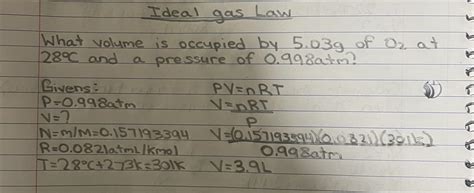 Ideal gas Law
What volume is occupied by 5.03g of O₂ at
28°C and a pressure of 0.998atm?
Givens:
P=0.998atm
V=?
N=m/M=0.157193394
R=0.0821atmL/Kmol
T=28°C+273K=301K
PV=nRT
V=nRT
P
V=(0.157193394)(0.0821)(301K)
0.998atm
V=3.9L